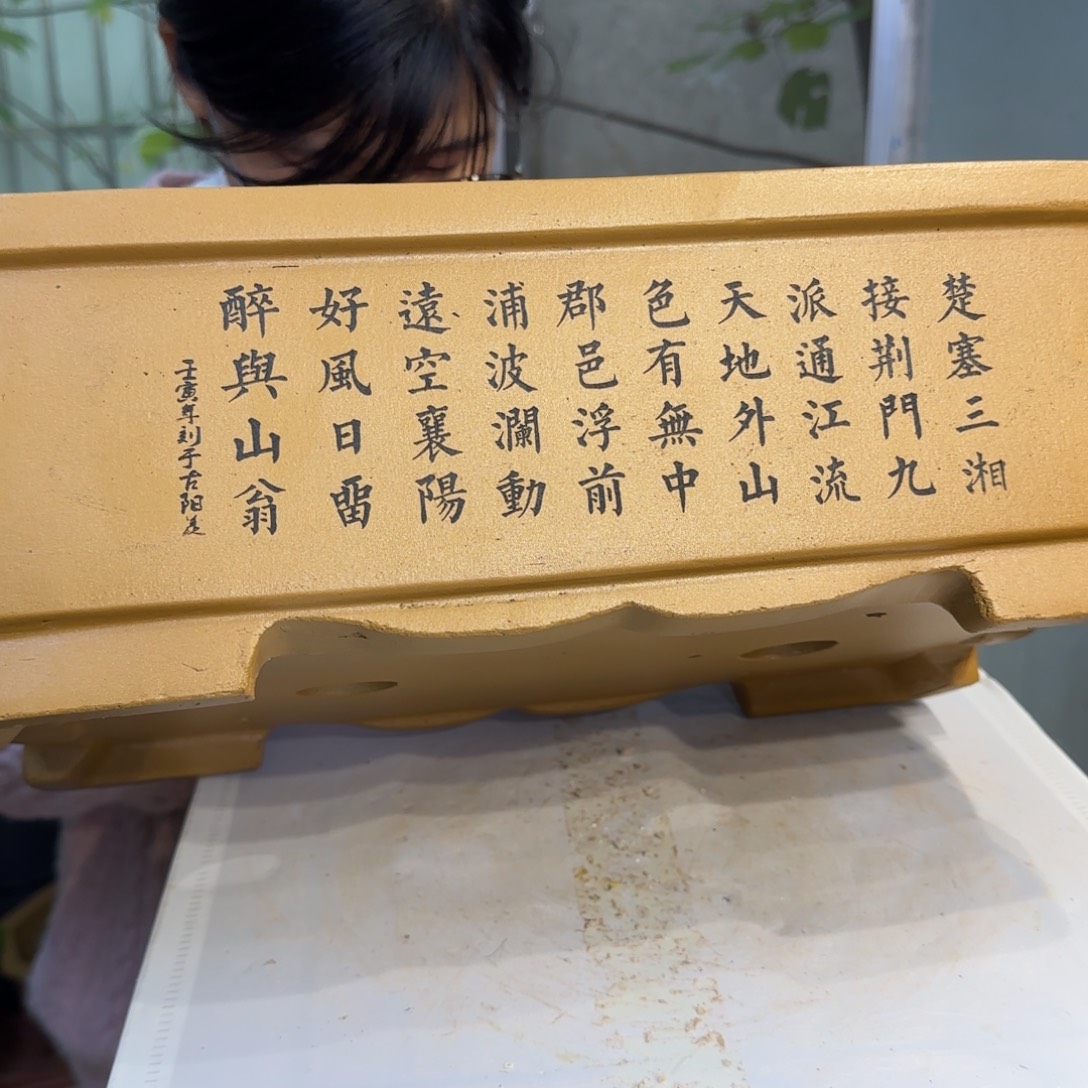 楚塞三湘
接荆門九
派通江流
天地外山
色有無中
郡邑浮前
浦波瀾動
遠空襄陽
好風日畱
醉與山翁
壬寅年刻于古陽羨